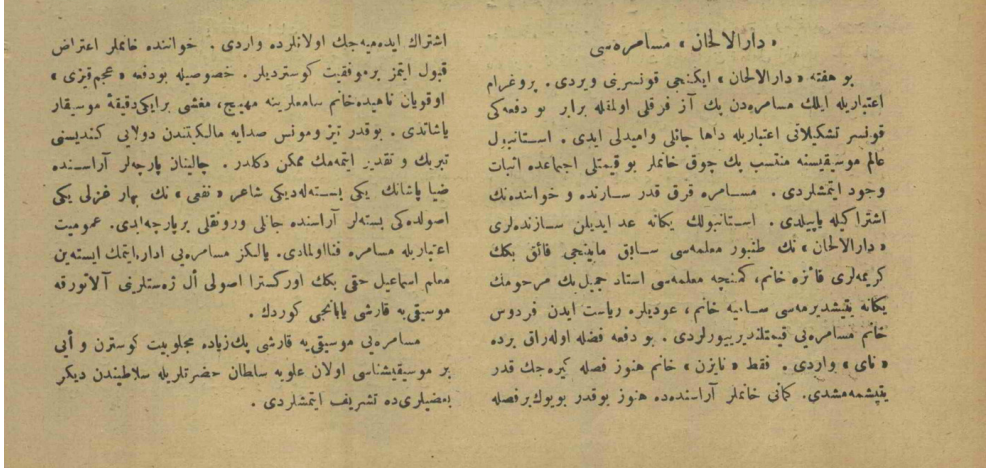 « دارالالحان » مسامره‌سی
بو هفته « دارالالحان » ایکنجی قونسرینی ویردی . پروغرام
اعتباریله ایلك مسامره‌دن پك آز فرقلی اولمقله برابر بو دفعه‌کی
قونسر تشکیلاتی اعتباریله داها جانلی وامیدلی ایدی . استانبول
عالم موسیقیسنه منتسب پك چوق خانملر بو قیمتلی اجتماعده اثبات
وجود ایتمشلردی . مسامره قرق قدر سازنده و خواننده‌نك
اشتراکیله یاپیلدی . استانبولك یکانه عد ایدیلن سازنده‌لری
« دارالالحان » نك طنبور معلمه‌سی سابق مابینجی فائق بكك
کریمه‌لری فائزه خانم، کمنچه معلمه‌سی استاد جمیل بك مرحومك
یکانه یتیشدیرمه‌سی سامیه خانم، عودیلره ریاست ایدن فردوس
خانم مسامره‌یی قیمتلندیرییورلردی . بو دفعه فضله اوله‌راق برده
« نای » واردی . فقط « نایزن » خانم هنوز فصله کیره‌جك قدر
یتیشمه‌مشدی. کمانی خانملر آراسنده‌ده هنوز بوقدر بویوك برفصله
اشتراك ایده‌میه‌جك اولانلرده واردی . خواننده خانملر اعتراض
قبول ایتمز برموفقیت کوستردیلر . خصوصیله بودفعه « عجم قیزی »
اوقویان ناهیده خانم سامعلرینه مهیج، مغشی برایکی دقیقهٔ موسیقار
یاشاتدی . بوقدر تیز ومونس صدایه مالکیتندن دولایی کندیسنی
تبریك و تقدیر ایتمه‌مك ممکن دکلدر . چالینان پارچه‌لر آراسنده
ضیا پاشانك یکی بسته‌له‌دیکی شاعر « نفعی » نك بهار غزلی یکی
اصولده‌کی بسته‌لر آراسنده جانلی ورونقلی برپارچه‌ایدی. عمومیت
اعتباریله مسامره فنااولمادی. یالکز مسامره‌یی اداره‌ایتمك ایسته‌ین
معلم اسماعیل حقی بكك اورکسترا اصولی أل ژه‌ستلرینی آلاتورقه
موسیقی‌یه قارشی یابانجی کوردك .
مسامره‌یی موسیقی‌یه قارشی پك‌زیاده مجلوبیت کوسترن و أیی
بر موسیقیشناسی اولان علویه سلطان حضرتلریله سلاطیندن دیکر
بعضیلری‌ده تشریف ایتمشلردی .